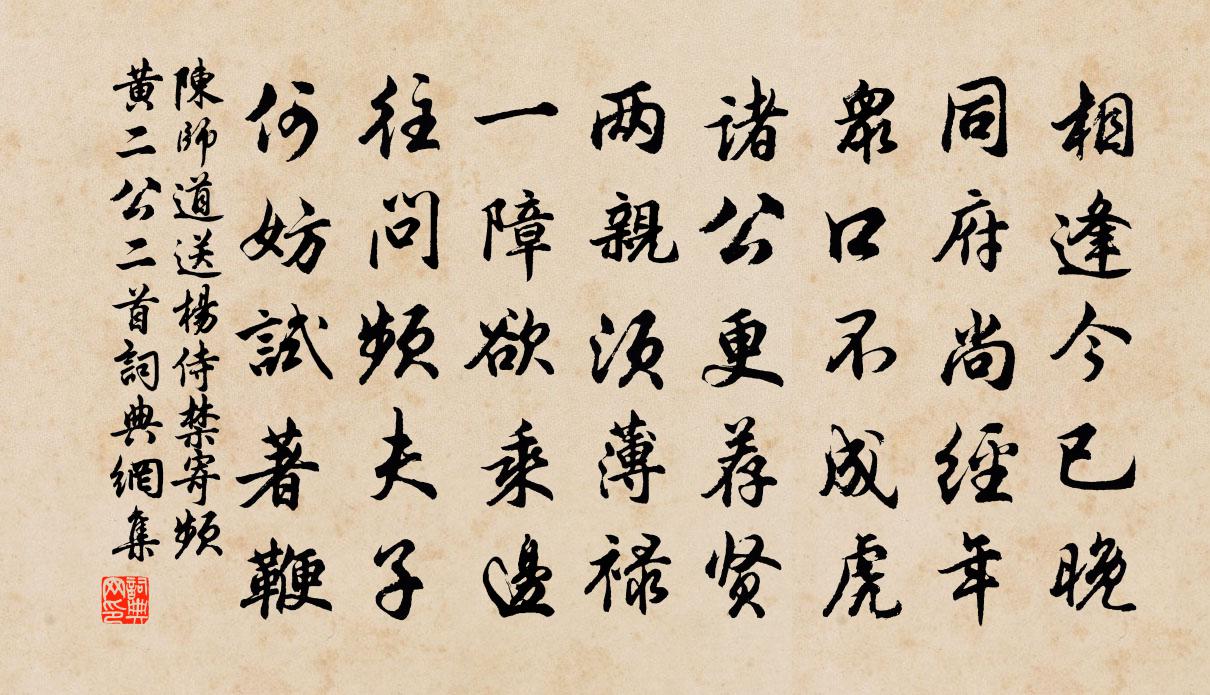 相逢今已晚
同府尚經年
衆口不成虎
诸公更荐贤
两親須薄禄
一障欲乘邊
往問頻夫子
何妨試著鞭
陳師道送楊侍禁寄頻
黃二公二首詞典網集
詞典網印